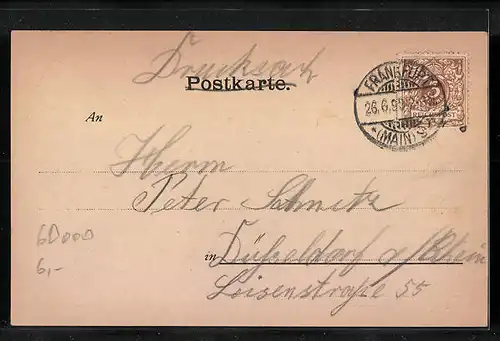 Drucksach
Postkarte.
FRANKFURT
26.6.9
(MAIN)
An
Herrn
Peter Schmitz
in Düsseldorf a/Rhein
Luisenstraße 55
6,-